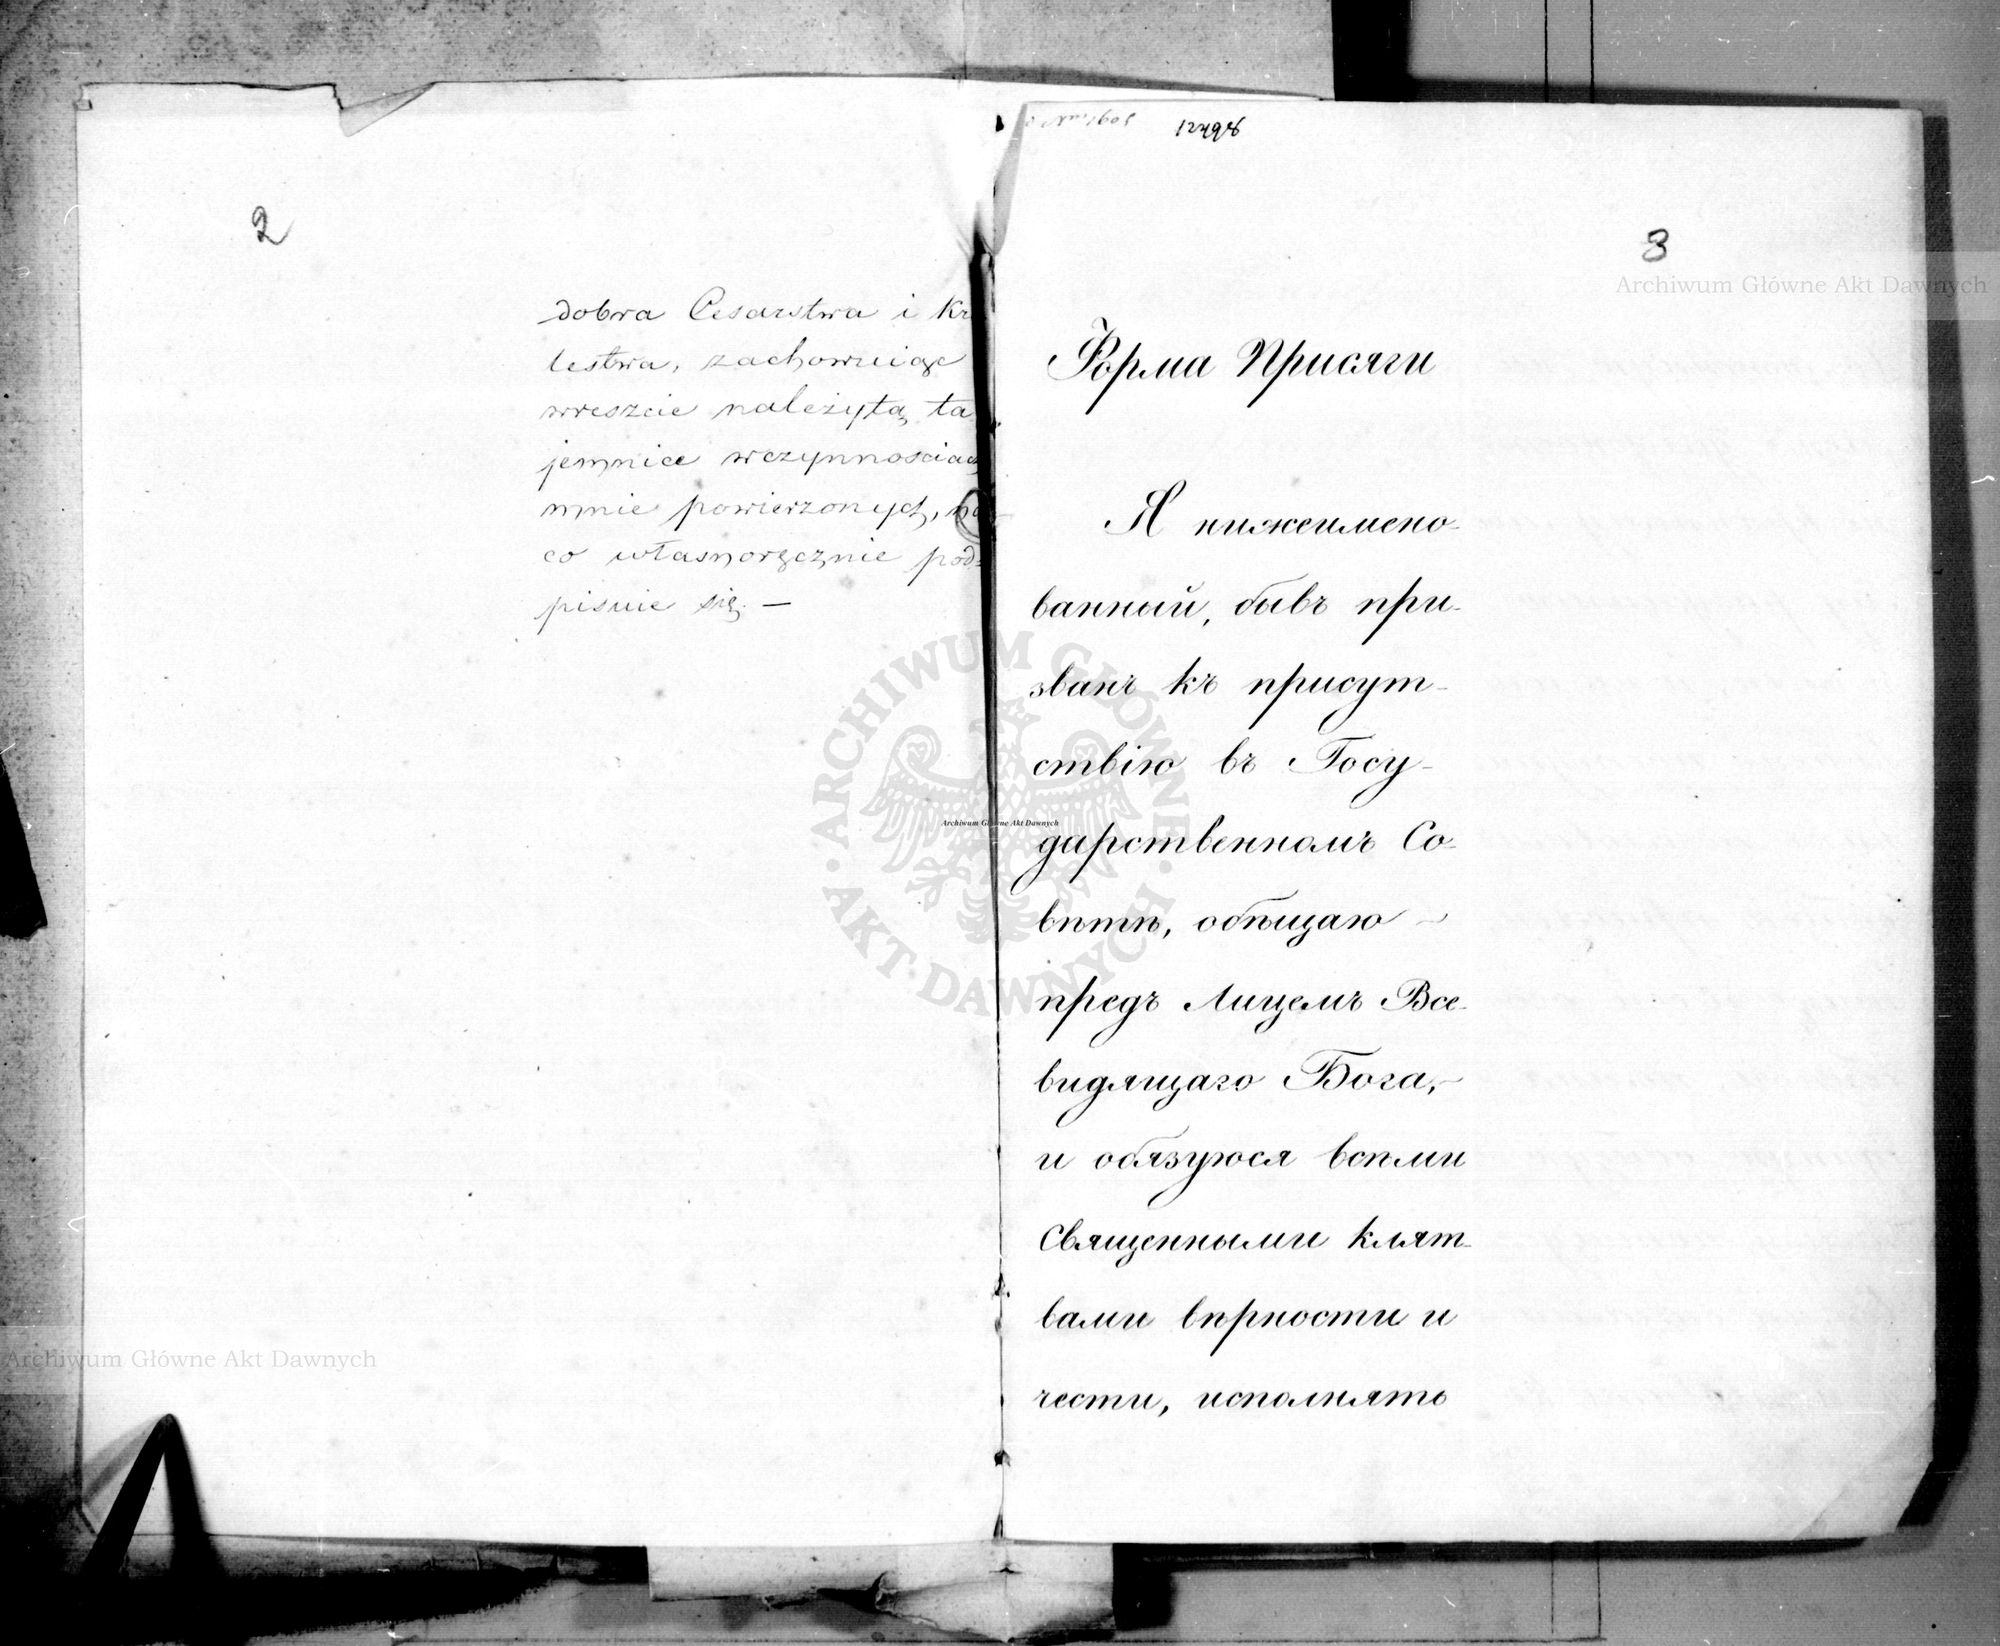 2
dobra Cesarstwa i Kr
lestwa, zachowuiąc
wreszcie należytą ta
jemnice wczynnosciach
mnie powierzonych, na
co własnoręcznie pod-
pisuie się. —
12498
3
Форма Присяги
Я нижеимено-
ванный, бывъ при-
званъ къ присут-
ствію въ Госу-
дарственномъ Со-
вѣтѣ, обѣщаю
предъ Лицемъ Все-
видящаго Бога,
и обязуюся всѣми
Священными клят-
вами вѣрности и
чести, исполнять
Archiwum Główne Akt Dawnych
ARCHIWUM GŁÓWNE · AKT DAWNYCH ·
Archiwum Główne Akt Dawnych
Archiwum Główne Akt Dawnych